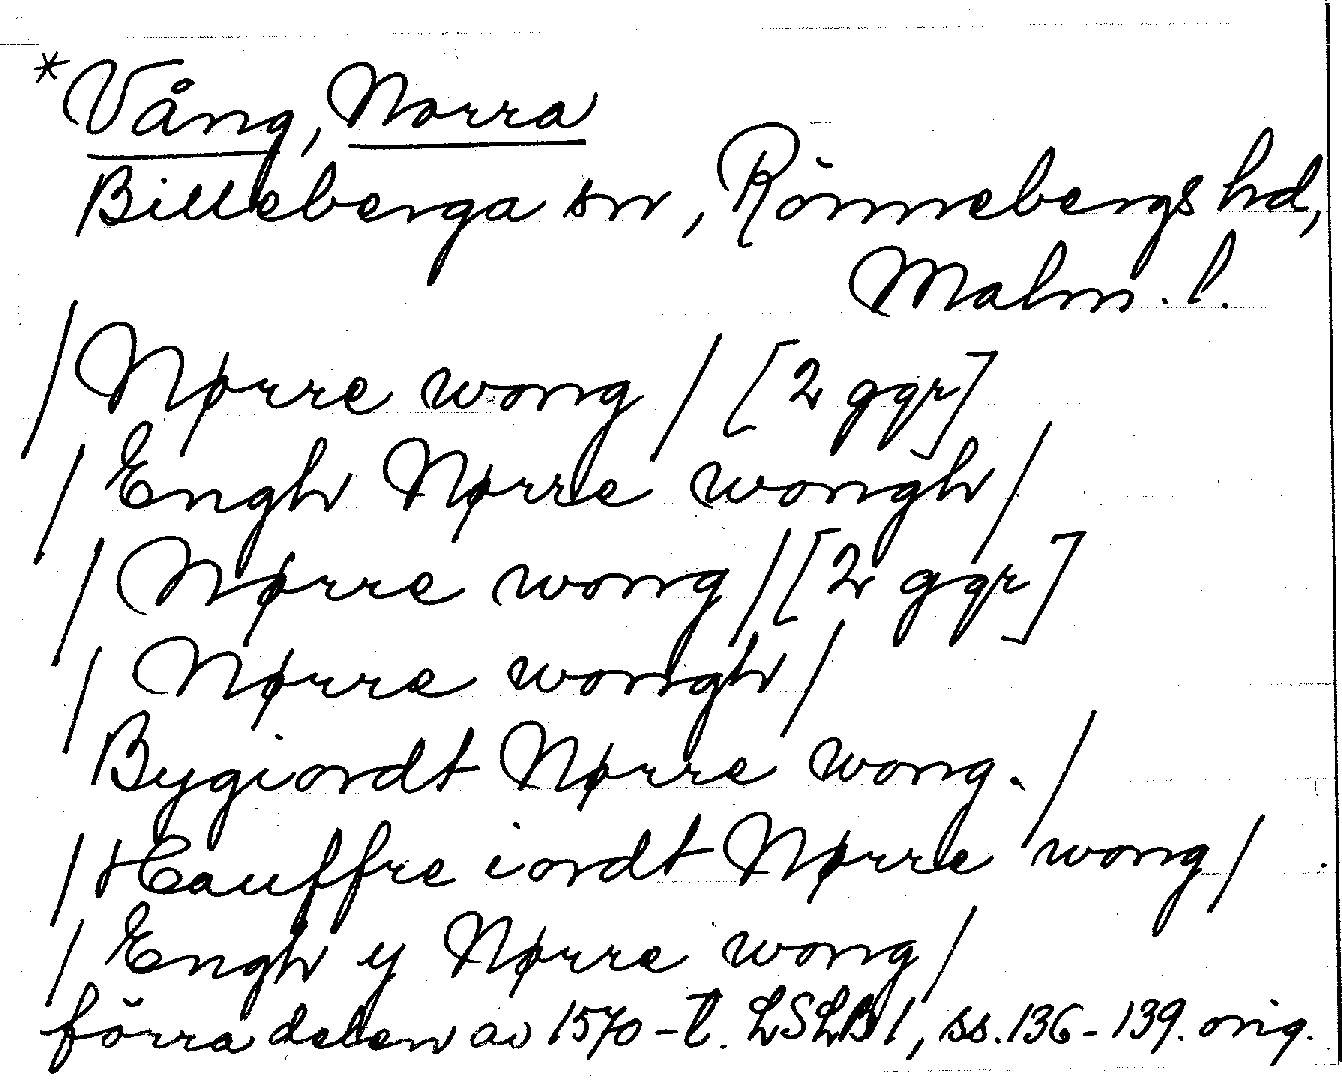 *Vång, Norra
Billeberga sn, Rönnebergs hd,
Malm. l.
/Nørre wong/ [2 ggr]
/Engh Nørre wongh/
/Nørre wong/ [2 ggr]
/Nørre wongh/
Bygiordt Nørre wong./
/Hauffre iordt Nørre wong/
/Engh y Nørre wong/
förra delen av 1570-t. LSLB 1, ss. 136-139. orig.